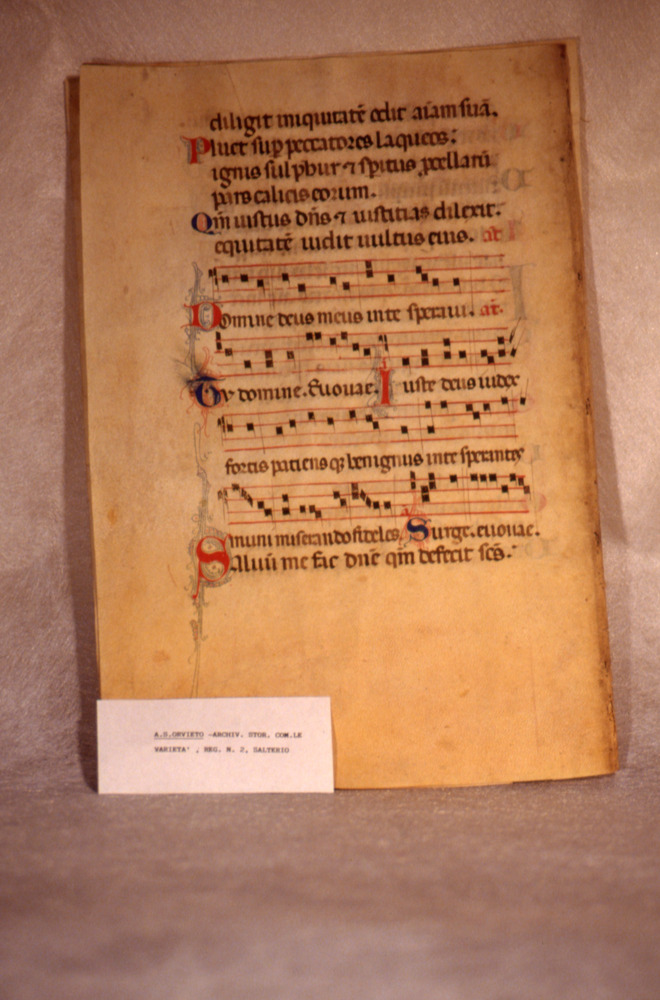 diligit iniquitatē odit aīam suā.
Pluet sup peccatores laqueos:
ignis sulphur ⁊ spiritus pcellarū
pars calicis eorum.
Qm̄ iustus dn̄s ⁊ iustitias dilexit.
equitatē uidit uultus eius. añ.
Domine deus meus in te speraui. añ.
Tu domine. Euouae. Iuste deus iudex
fortis patiens qȝ benignus in te sperantes
muni miserando fideles. Surge. euouae.
Saluū me fac dn̄e qm̄ defecit scs̄.
A.S.ORVIETO -ARCHIV. STOR. COM.LE
VARIETA' , REG. N. 2, SALTERIO